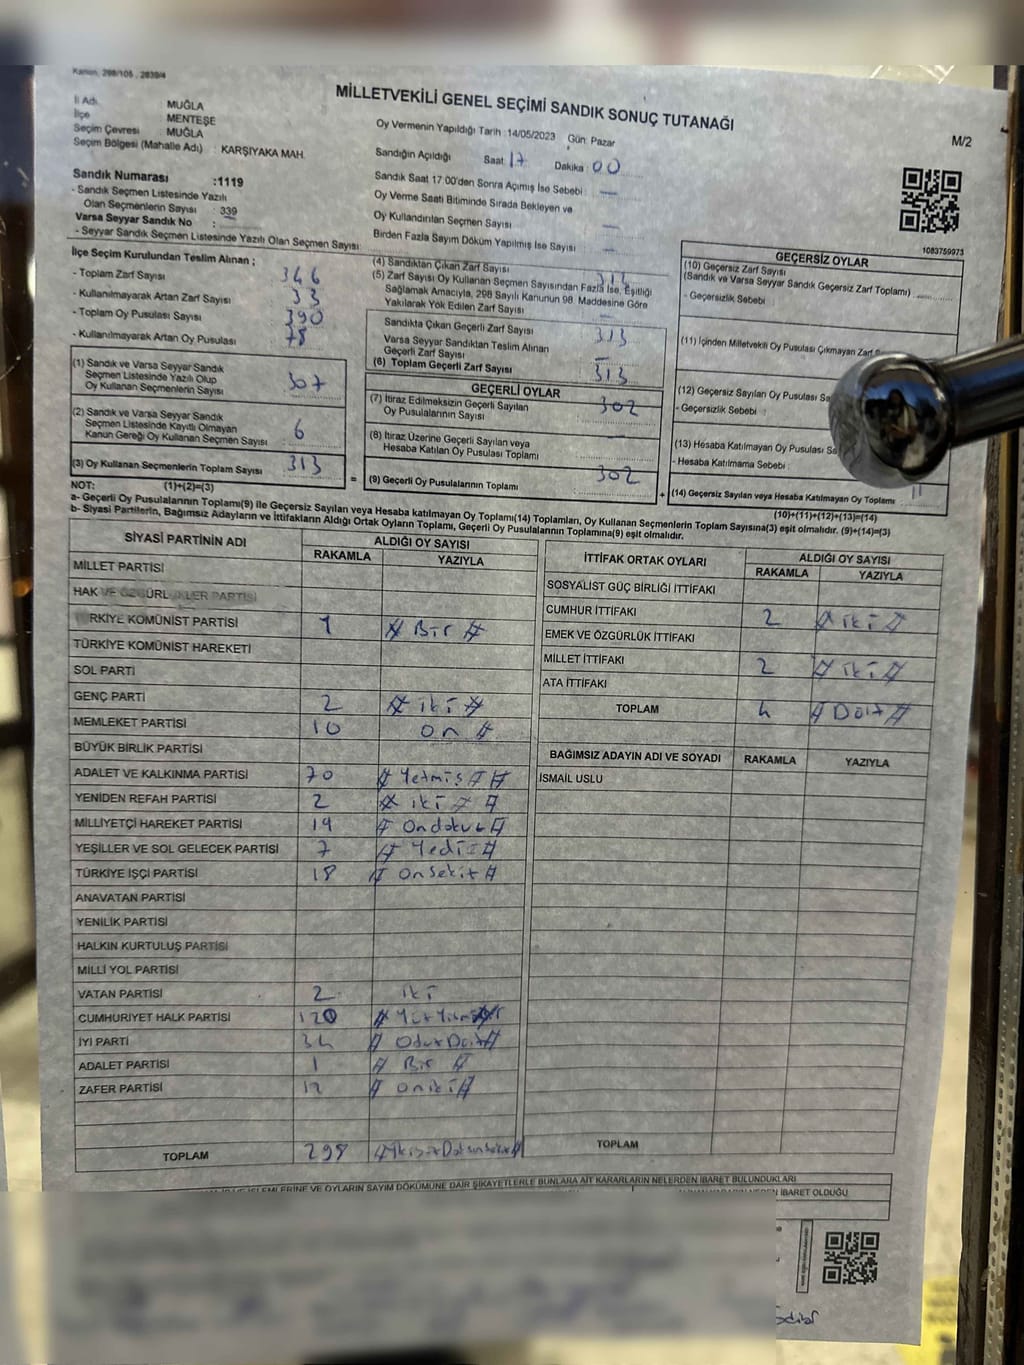 Kanun, 298/105 , 2839/4
MİLLETVEKİLİ GENEL SEÇİMİ SANDIK SONUÇ TUTANAĞI
M/2
İl Adı : MUĞLA
İlçe : MENTEŞE
Seçim Çevresi : MUĞLA
Seçim Bölgesi (Mahalle Adı) : KARŞIYAKA MAH.
Sandık Numarası :1119
- Sandık Seçmen Listesinde Yazılı
Olan Seçmenlerin Sayısı : 339
Varsa Seyyar Sandık No :
- Seyyar Sandık Seçmen Listesinde Yazılı Olan Seçmen Sayısı
Oy Vermenin Yapıldığı Tarih :14/05/2023 Gün: Pazar
Sandığın Açıldığı Saat 17 Dakika 00
Sandık Saat 17:00'den Sonra Açılmış İse Sebebi —
Oy Verme Saati Bitiminde Sırada Bekleyen ve
Oy Kullandırılan Seçmen Sayısı —
Birden Fazla Sayım Döküm Yapılmış İse Sayısı —
1083759973
İlçe Seçim Kurulundan Teslim Alınan ;
- Toplam Zarf Sayısı 346
- Kullanılmayarak Artan Zarf Sayısı 33
- Toplam Oy Pusulası Sayısı 390
- Kullanılmayarak Artan Oy Pusulası 78
(1) Sandık ve Varsa Seyyar Sandık
Seçmen Listesinde Yazılı Olup
Oy Kullanan Seçmenlerin Sayısı 307
(2) Sandık ve Varsa Seyyar Sandık
Seçmen Listesinde Kayıtlı Olmayan
Kanun Gereği Oy Kullanan Seçmen Sayısı 6
(3) Oy Kullanan Seçmenlerin Toplam Sayısı 313
(4) Sandıktan Çıkan Zarf Sayısı 313
(5) Zarf Sayısı Oy Kullanan Seçmen Sayısından Fazla İse, Eşitliği
Sağlamak Amacıyla, 298 Sayılı Kanunun 98. Maddesine Göre
Yakılarak Yok Edilen Zarf Sayısı —
Sandıkta Çıkan Geçerli Zarf Sayısı 313
Varsa Seyyar Sandıktan Teslim Alınan
Geçerli Zarf Sayısı —
(6) Toplam Geçerli Zarf Sayısı 313
GEÇERLİ OYLAR
(7) İtiraz Edilmeksizin Geçerli Sayılan
Oy Pusulalarının Sayısı 302
(8) İtiraz Üzerine Geçerli Sayılan veya
Hesaba Katılan Oy Pusulası Toplamı —
= (9) Geçerli Oy Pusulalarının Toplamı 302
GEÇERSİZ OYLAR
(10) Geçersiz Zarf Sayısı
(Sandık ve Varsa Seyyar Sandık Geçersiz Zarf Toplamı)
- Geçersizlik Sebebi :
(11) İçinden Milletvekili Oy Pusulası Çıkmayan Zarf
(12) Geçersiz Sayılan Oy Pusulası
- Geçersizlik Sebebi :
(13) Hesaba Katılmayan Oy Pusulası
- Hesaba Katılmama Sebebi :
+ (14) Geçersiz Sayılan veya Hesaba Katılmayan Oy Toplamı 11
NOT: (1)+(2)=(3)
(10)+(11)+(12)+(13)=(14)
a- Geçerli Oy Pusulalarının Toplamı(9) ile Geçersiz Sayılan veya Hesaba katılmayan Oy Toplamı(14) Toplamları, Oy Kullanan Seçmenlerin Toplam Sayısına(3) eşit olmalıdır. (9)+(14)=(3)
b- Siyasi Partilerin, Bağımsız Adayların ve İttifakların Aldığı Ortak Oyların Toplamı, Geçerli Oy Pusulalarının Toplamına(9) eşit olmalıdır.
SİYASİ PARTİNİN ADI ALDIĞI OY SAYISI
RAKAMLA YAZIYLA
MİLLET PARTİSİ
HAK VE ÖZGÜRLÜKLER PARTİSİ
RKİYE KOMÜNİST PARTİSİ 1 # Bir #
TÜRKİYE KOMÜNİST HAREKETİ
SOL PARTİ
GENÇ PARTİ 2 # iki #
MEMLEKET PARTİSİ 10 on #
BÜYÜK BİRLİK PARTİSİ
ADALET VE KALKINMA PARTİSİ 70 # Yetmiş # #
YENİDEN REFAH PARTİSİ 2 # iki # #
MİLLİYETÇİ HAREKET PARTİSİ 19 # Ondokuz #
YEŞİLLER VE SOL GELECEK PARTİSİ 7 # Yedi #
TÜRKİYE İŞÇİ PARTİSİ 18 # Onsekiz #
ANAVATAN PARTİSİ
YENİLİK PARTİSİ
HALKIN KURTULUŞ PARTİSİ
MİLLİ YOL PARTİSİ
VATAN PARTİSİ 2 iki
CUMHURİYET HALK PARTİSİ 120
İYİ PARTİ 34 # OtuzDört #
ADALET PARTİSİ 1 # Bir #
ZAFER PARTİSİ 12 # oniki #
TOPLAM 298
İTTİFAK ORTAK OYLARI ALDIĞI OY SAYISI
RAKAMLA YAZIYLA
SOSYALİST GÜÇ BİRLİĞİ İTTİFAKI
CUMHUR İTTİFAKI 2 # iki #
EMEK VE ÖZGÜRLÜK İTTİFAKI
MİLLET İTTİFAKI 2 # iki #
ATA İTTİFAKI
TOPLAM 4 # Dört #
BAĞIMSIZ ADAYIN ADI VE SOYADI RAKAMLA YAZIYLA
İSMAİL USLU
TOPLAM
İŞLEMLERİNE VE OYLARIN SAYIM DÖKÜMÜNE DAİR ŞİKAYETLERLE BUNLARA AİT KARARLARIN NELERDEN İBARET BULUNDUKLARI
İBARET OLDUĞU